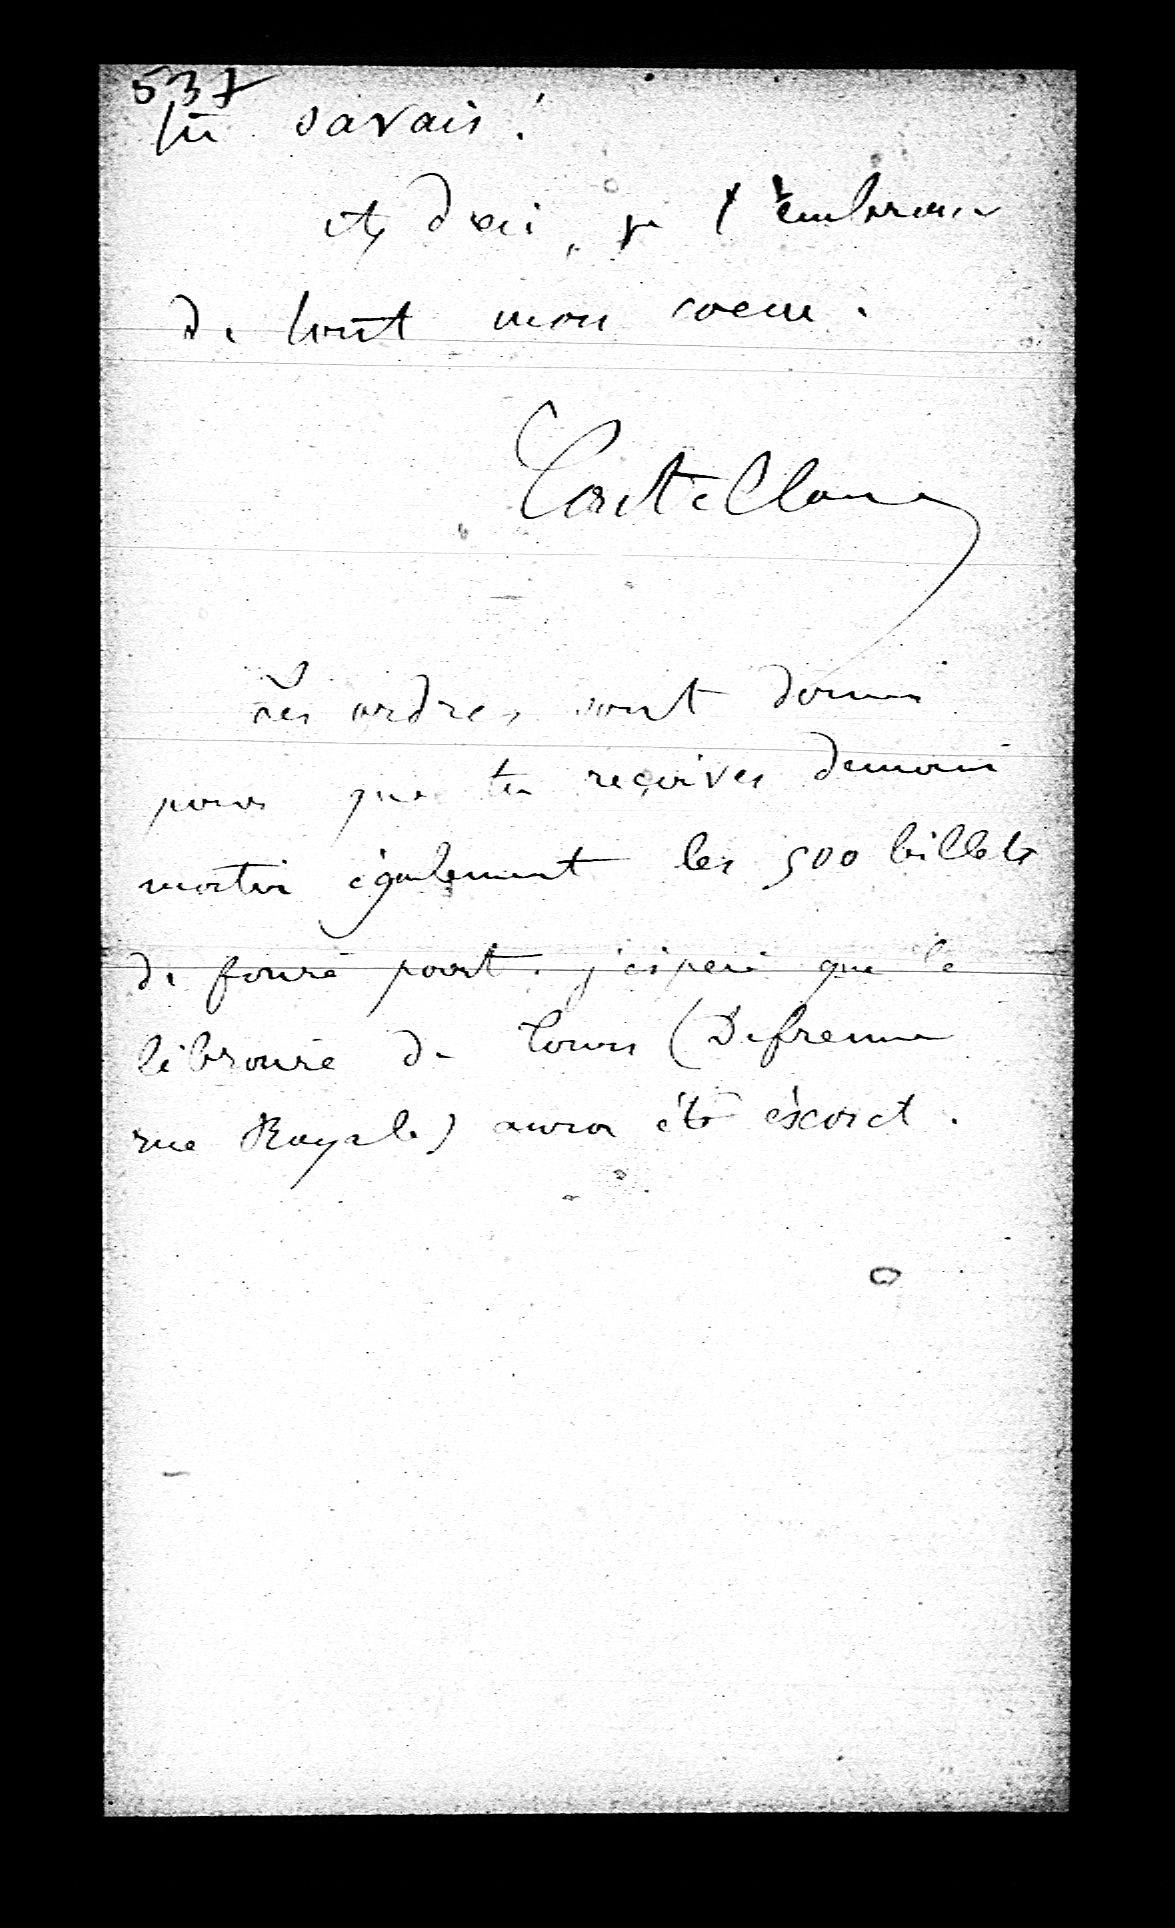 537
tu savais !
et, d'ici, je t'embrasse
de tout mon coeur.
Castellane
Les ordres sont donnés
pour que tu reçoives demain
matin également les 500 billets
de faire part. j'espère que le
libraire de Tours (Defrenne
rue Royale) aura été éxact.